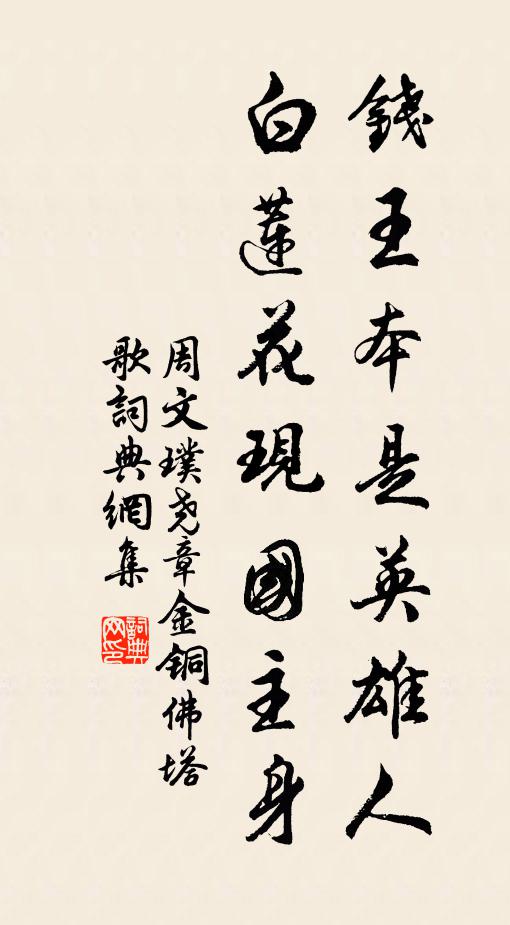 錢王本是英雄人
白蓮花現國主身
周文璞堯章金銅佛塔
歌詞典網集
詞典网印